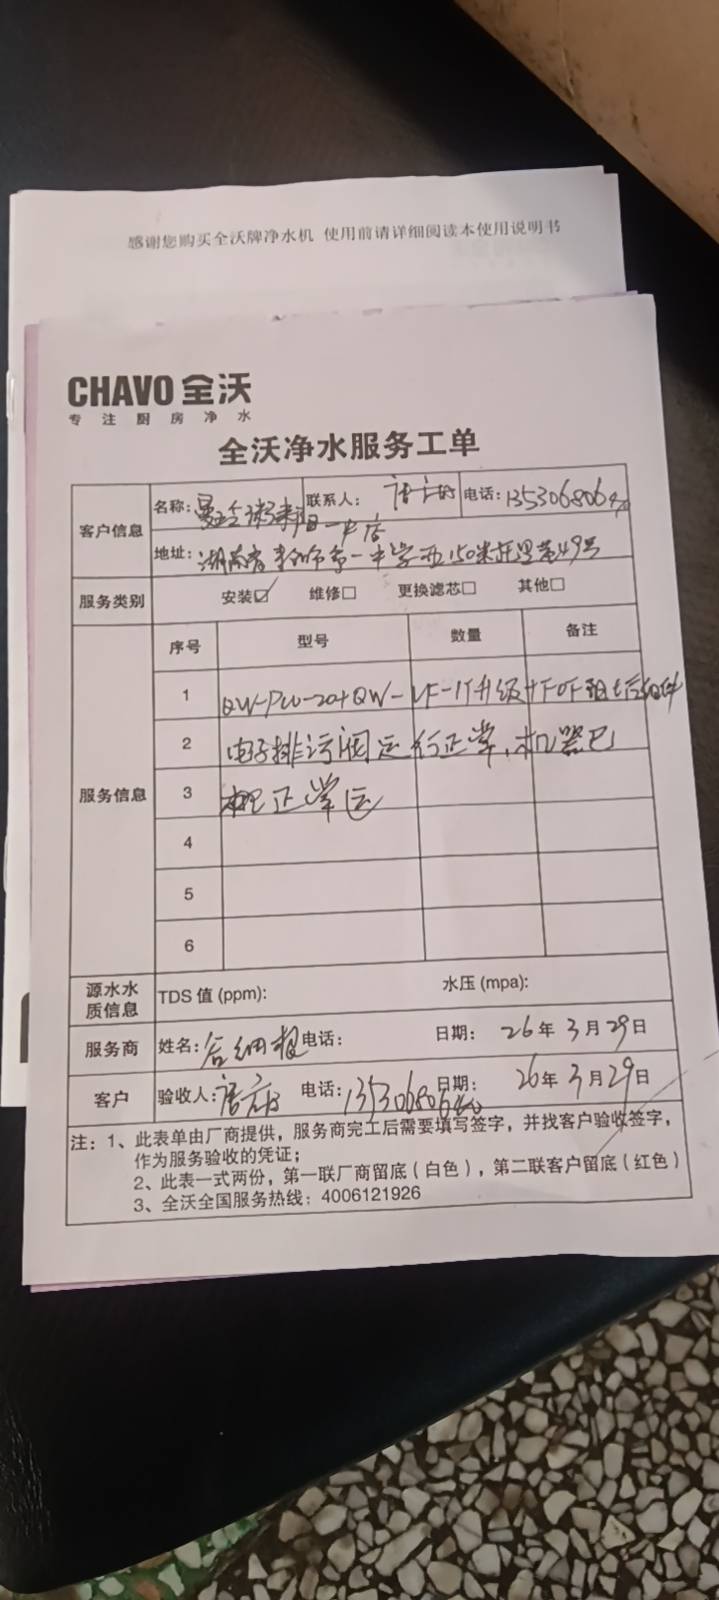 感谢您购买全沃牌净水机 使用前请详细阅读本使用说明书
CHAVO 全沃
专注厨房净水
全沃净水服务工单
客户信息
名称: 粥 一中店
联系人:
电话: 135306806
地址: 湖南省 市第一中学西150米 49号
服务类别 安装☑ 维修□ 更换滤芯□ 其他□
服务信息
序号 型号 数量 备注
1 QW-PW-20+QW-UF-1T升级+
2 电子排污阀运行正常,机器已
3 正常运
4
5
6
源水水质信息 TDS 值 (ppm): 水压 (mpa):
服务商 姓名: 电话: 日期: 26年3月29日
客户 验收人: 电话: 135306806 日期: 26年3月29日
注: 1、此表单由厂商提供,服务商完工后需要填写签字,并找客户验收签字,
作为服务验收的凭证;
2、此表一式两份,第一联厂商留底(白色),第二联客户留底(红色)
3、全沃全国服务热线: 4006121926